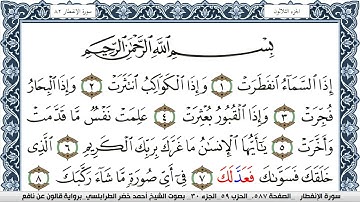 الجزء الثلاثون
سورة الإنفطار ٨٢
بِسْمِ اللَّهِ الرَّحْمَٰنِ الرَّحِيمِ
إِذَا السَّمَآءُ انفَطَرَتْ ١ وَإِذَا الْكَوَاكِبُ انتَثَرَتْ ٢ وَإِذَا الْبِحَارُ
فُجِّرَتْ ٣ وَإِذَا الْقُبُورُ بُعْثِرَتْ ٤ عَلِمَتْ نَفْسٌ مَّا قَدَّمَتْ
وَأَخَّرَتْ ٥ يَٰٓأَيُّهَا الْإِنسَٰنُ مَا غَرَّكَ بِرَبِّكَ الْكَرِيمِ ٦ الَّذِى
خَلَقَكَ فَسَوَّىٰكَ فَعَدَّلَكَ ٧ فِىٓ أَىِّ صُورَةٍ مَّا شَآءَ رَكَّبَكَ ٨
سورة الإنفطار - الصفحة ٥٨٧ - الحزب ٥٩ - الجزء ٣٠ - بصوت الشيخ أحمد خضر الطرابلسي - برواية قالون عن نافع